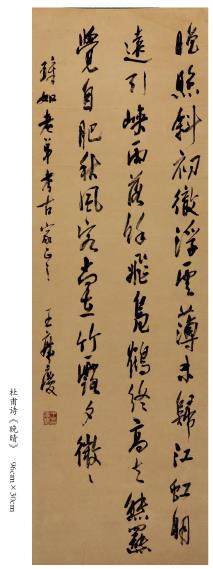 晚照斜初徹浮雲薄未歸江虹明
遠引峽雨落餘飛鳧鶴終高去熊羆
覺自肥秋風客尚在竹露夕微〻
如老弟考古家正之 王 慶
杜甫诗《晚晴》 96cm×30cm